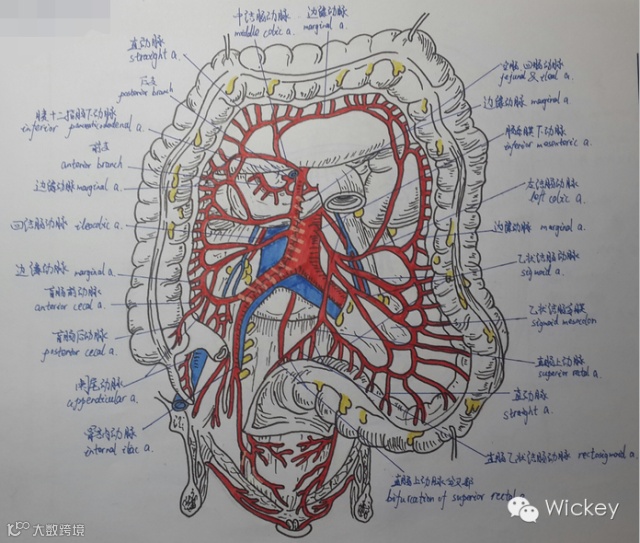 中结肠动脉
middle colic a.
边缘动脉
marginal a.
直动脉
straight a.
后支
posterior branch
胰十二指肠下动脉
inferior pancreaticoduodenal a.
前支
anterior branch
边缘动脉 marginal a.
回结肠动脉 ileocolic a.
边缘动脉 marginal a.
盲肠前动脉
anterior cecal a.
盲肠后动脉
posterior cecal a.
阑尾动脉
appendicular a.
髂内动脉
internal iliac a.
空肠、回肠动脉
jejunal & ileal a.
边缘动脉 marginal a.
肠系膜下动脉
inferior mesenteric a.
左结肠动脉
left colic a.
边缘动脉 marginal a.
乙状结肠动脉
sigmoid a.
乙状结肠系膜
sigmoid mesocolon
直肠上动脉
superior retal a.
直动脉
straight a.
直肠乙状结肠动脉 rectosigmoid a.
直肠上动脉分叉部
bifurcation of superior rectal a.
Wickey
大数跨境